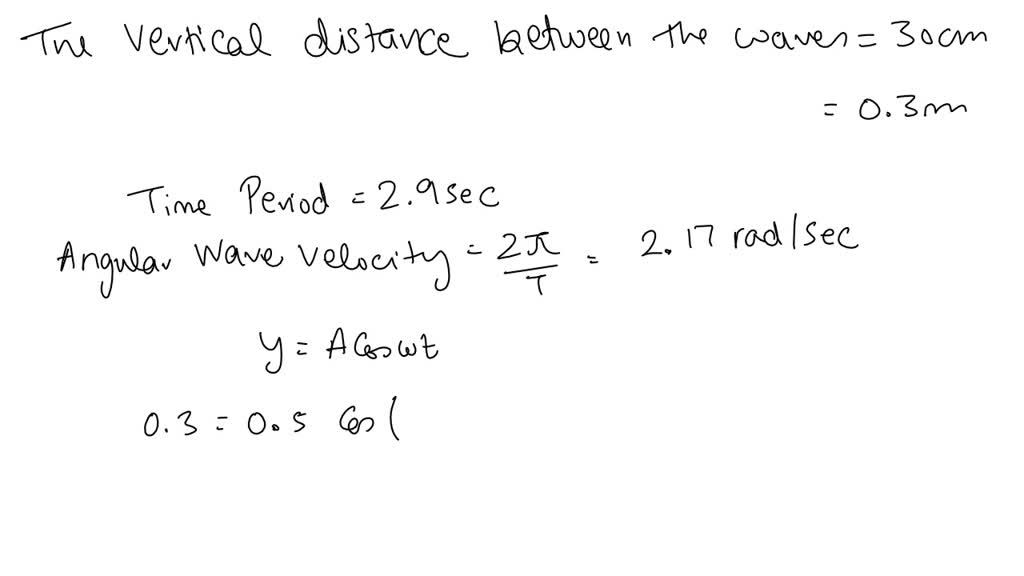 The Vertical distance between the waves = 30cm
= 0.3m
Time Period = 2.9 sec
Angular Wave Velocity = 2π/T = 2.17 rad/sec
y = A Cos ωt
0.3 = 0.5 Cos (